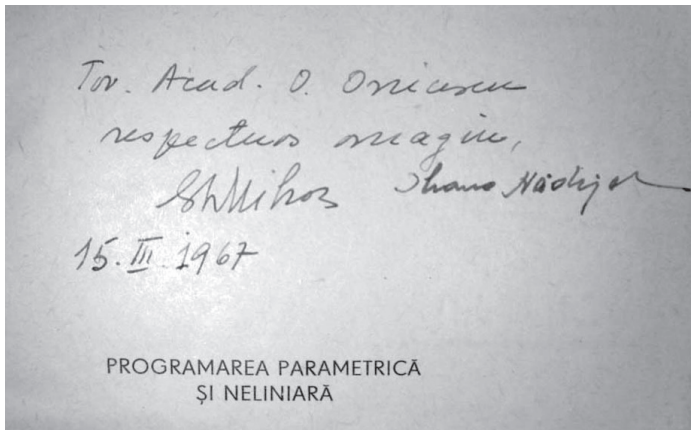 Tov. Acad. O. Onicescu
respectuos omagiu,
Șt. Mihoc Ileana Nădejde
15.III.1967
PROGRAMAREA PARAMETRICĂ
ȘI NELINIARĂ